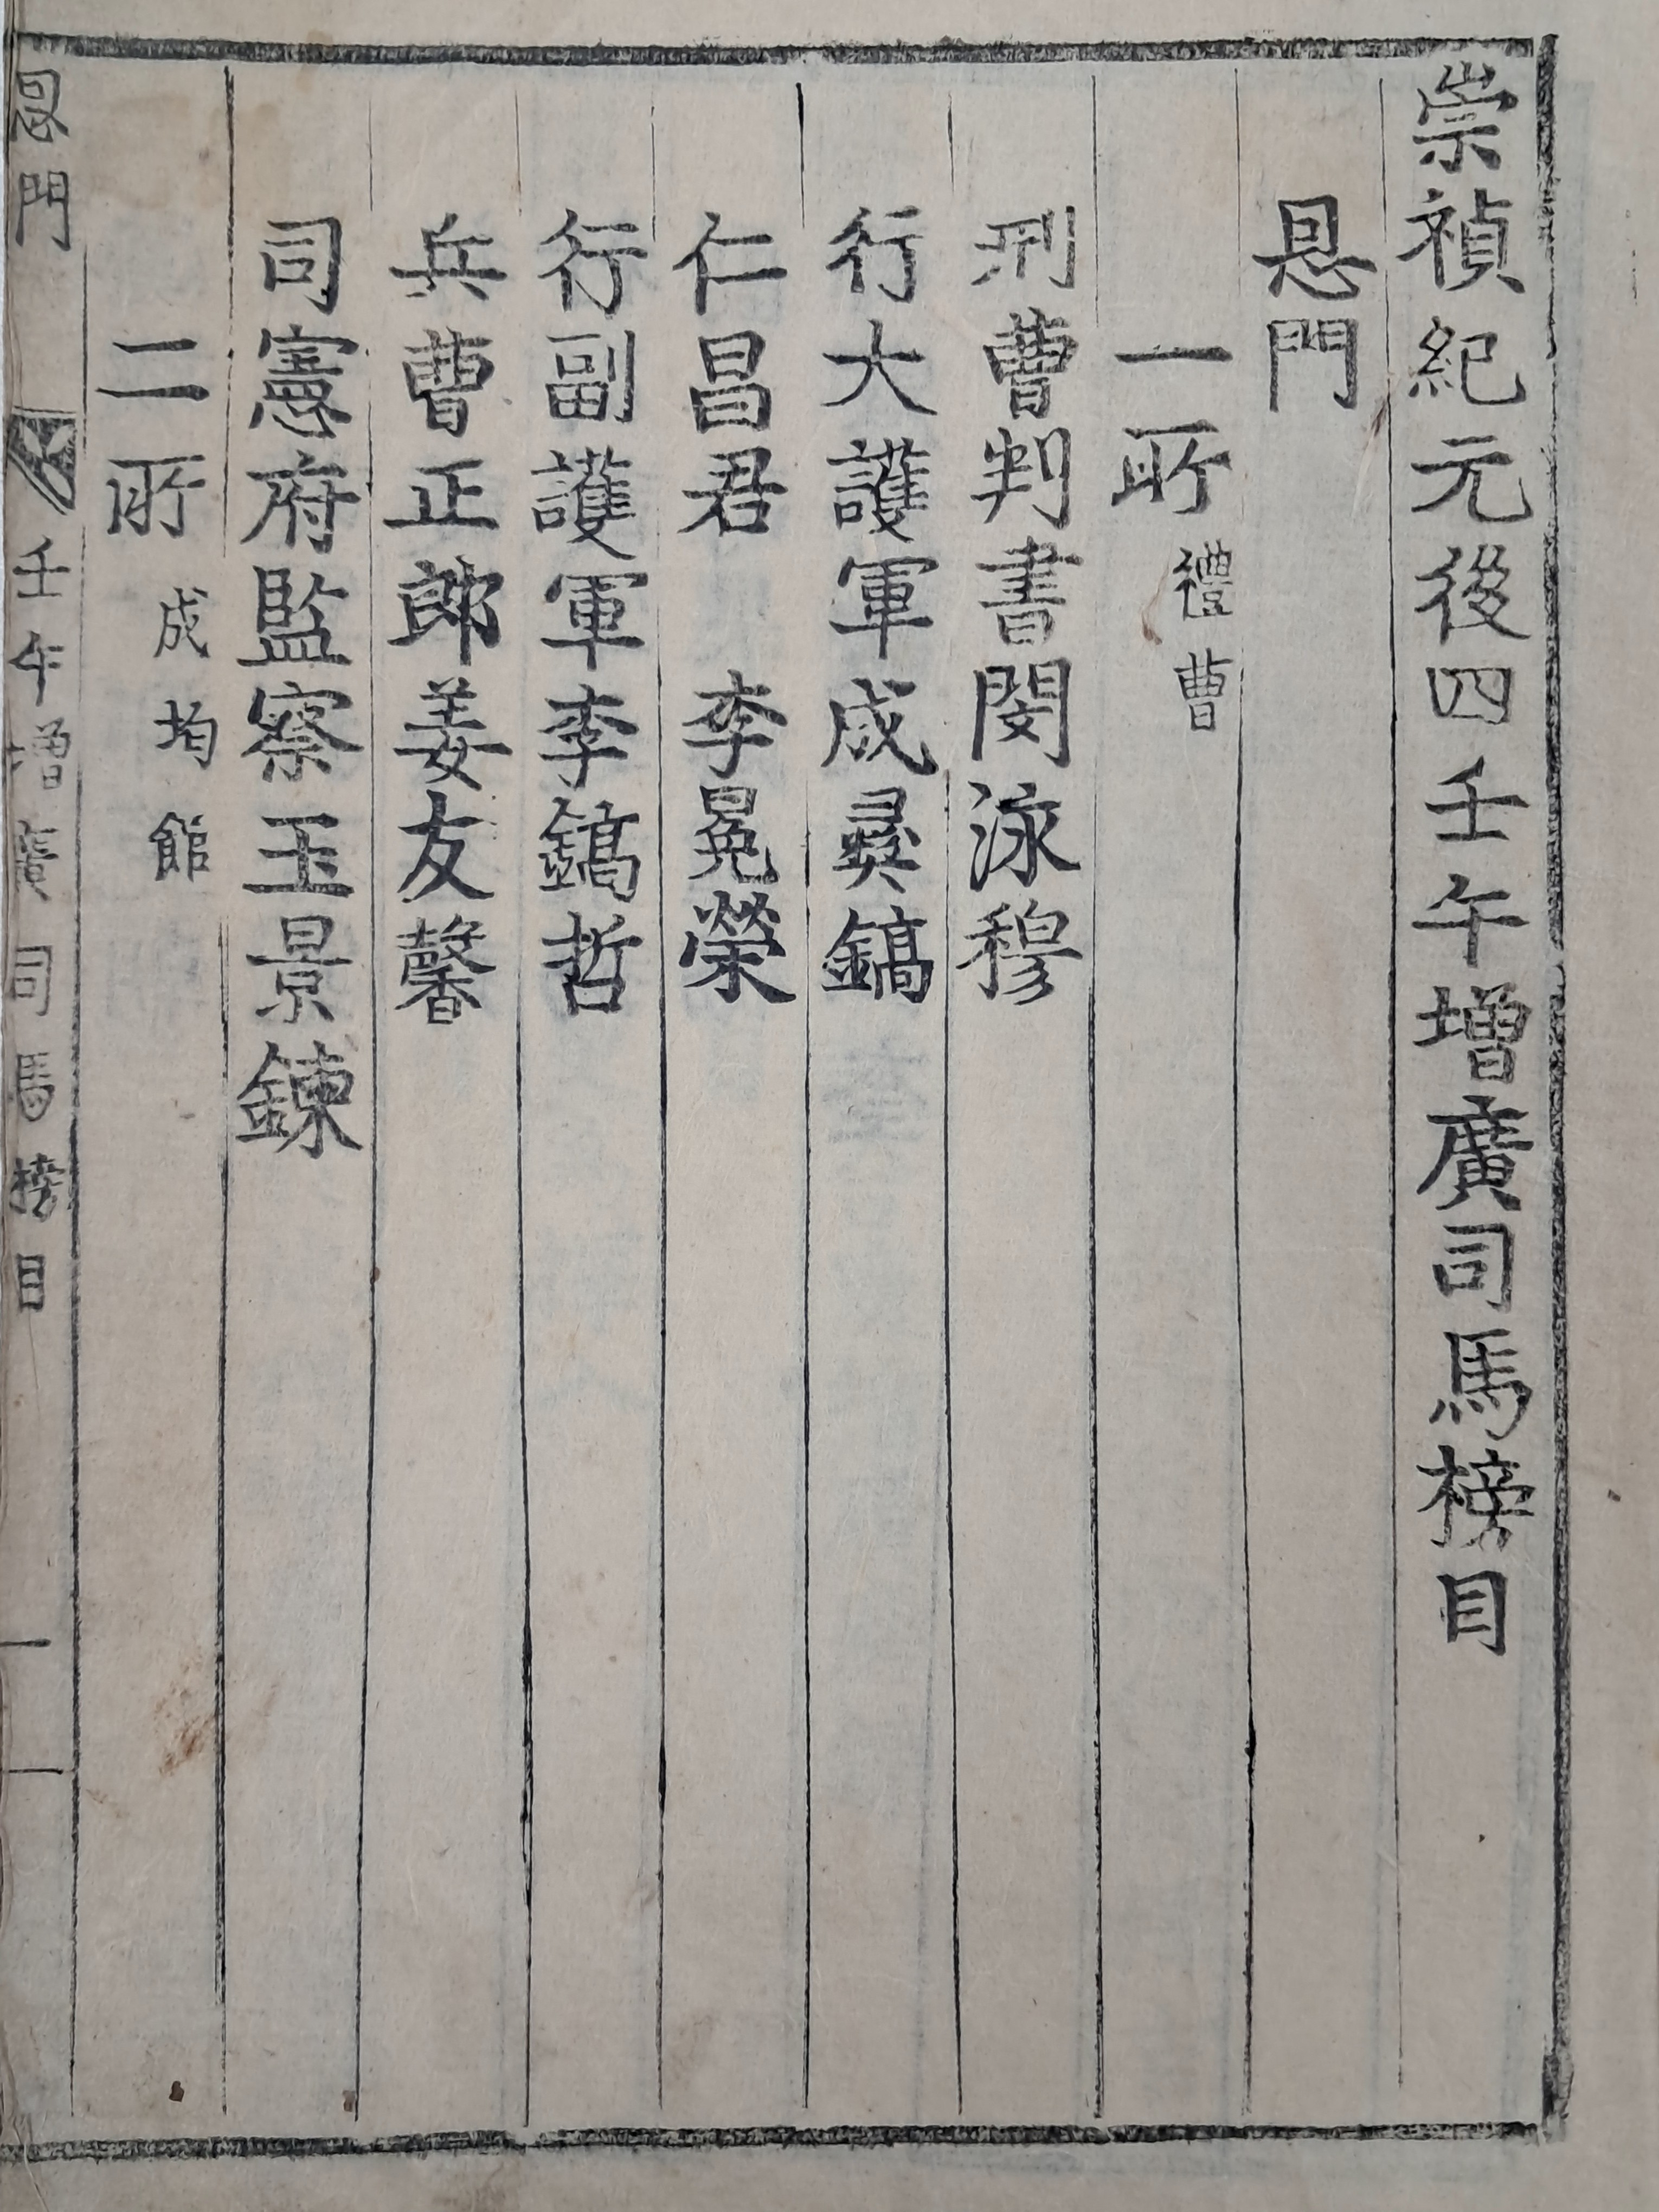 崇禎紀元後四壬午增廣司馬榜目
恩門
一所 禮曹
刑曹判書閔泳穆
行大護軍成彛鎬
仁昌君 李冕榮
行副護軍李鎬哲
兵曹正郎姜友馨
司憲府監察玉景鍊
二所 成均館
恩門 壬午增廣司馬榜目 一